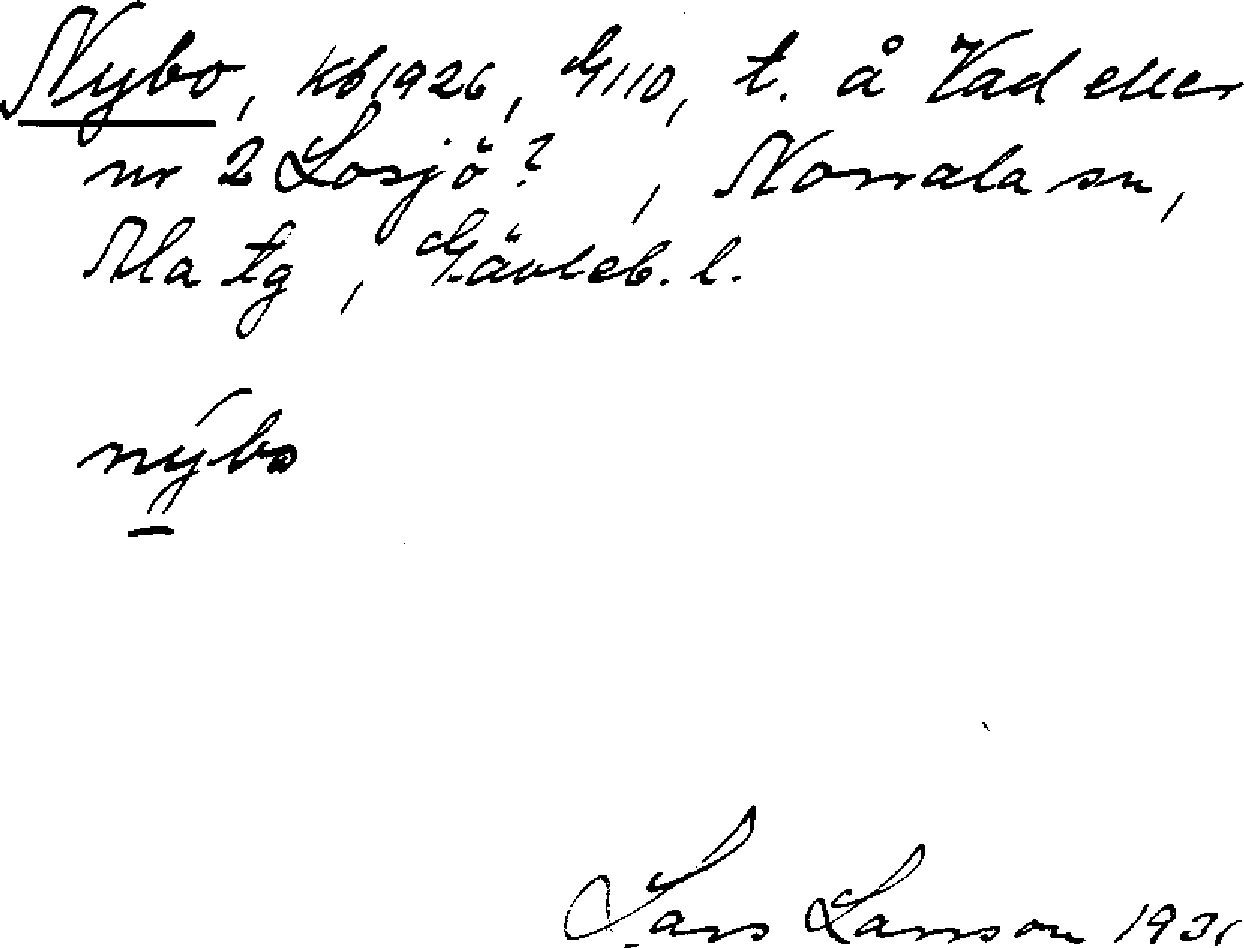 Nybo, Kb 1926, G110, t. å Vad eller
nr 2 Losjö?, Norrala sn,
Ala tg, Gävleb. l.
nýbo
Lars Larsson 1931